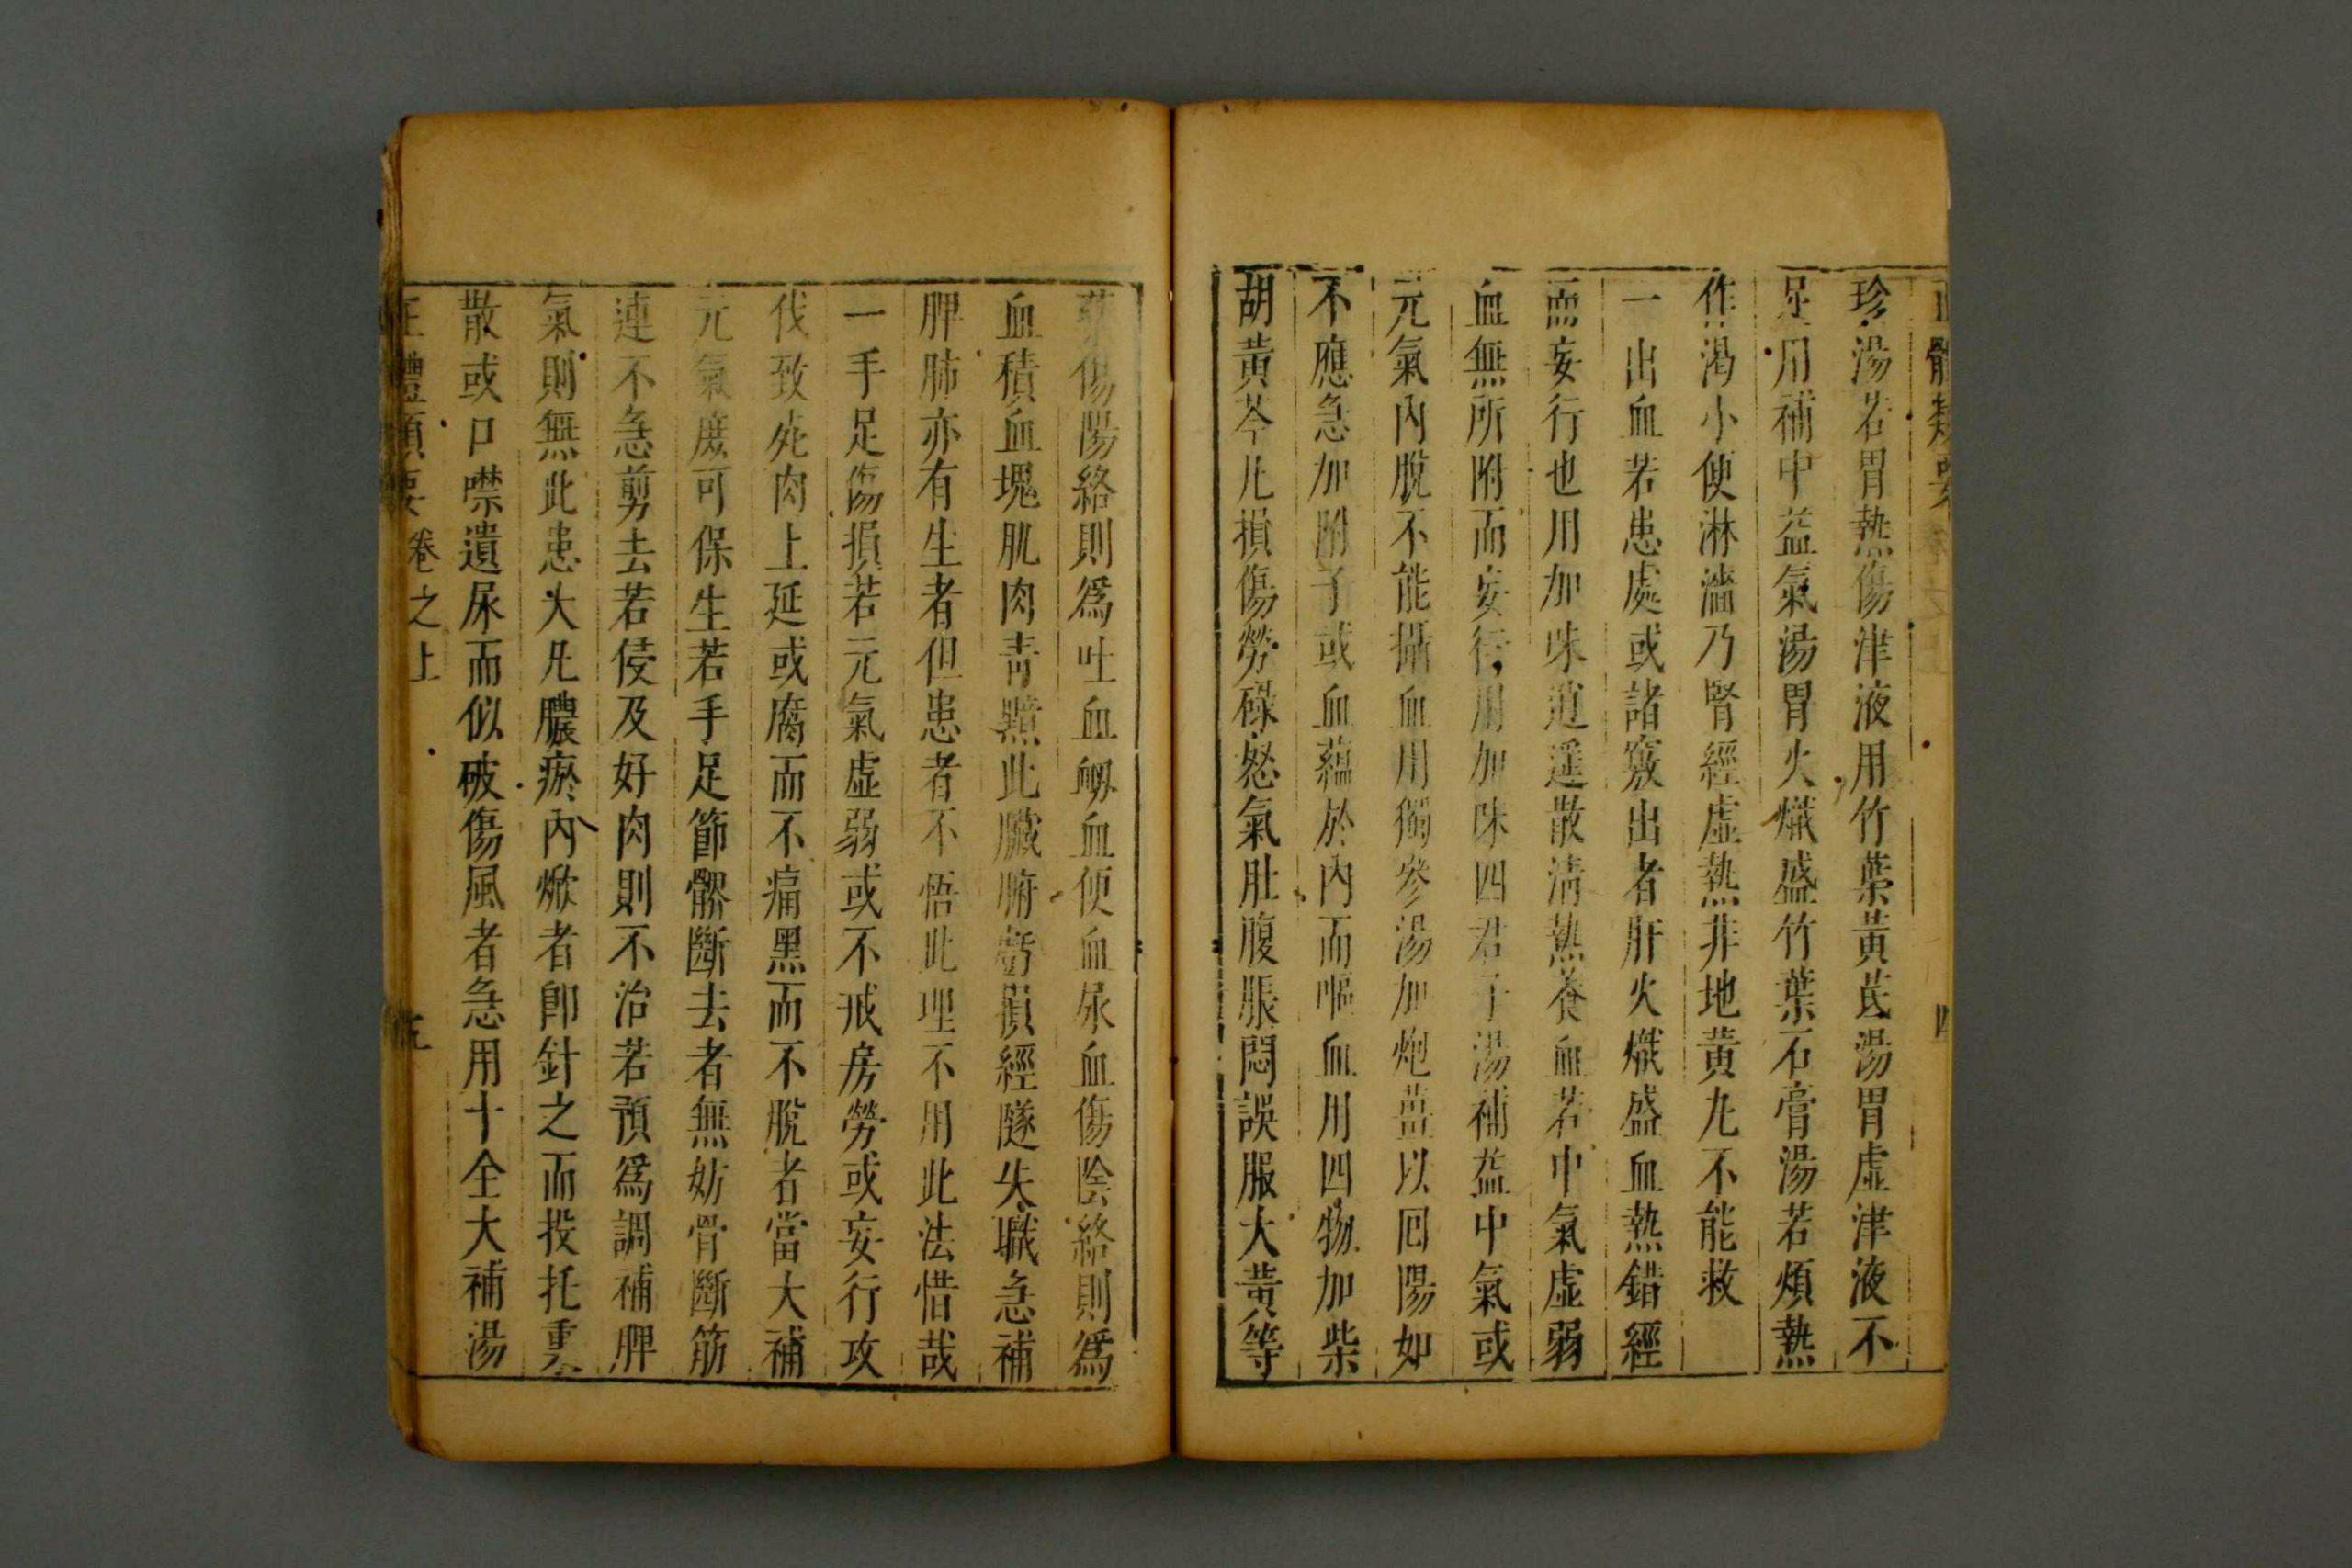 正體類要
四
珍湯若胃熱傷津液用竹葉黃芪湯胃虛津液不
足用補中益氣湯胃火熾盛竹葉石膏湯若煩熱
作渴小便淋濇乃腎經虛熱非地黃丸不能救
一出血若患處或諸竅出者肝火熾盛血熱錯經
而妄行也用加味逍遥散清熱養血若中氣虛弱
血無所附而妄行用加味四君子湯補益中氣或
元氣內脫不能攝血用獨參湯加炮薑以囘陽如
不應急加附子或血蘊於內而嘔血用四物加柴
胡黃芩凡損傷勞碌怒氣肚腹脹悶誤服大黃等
藥傷陽絡則爲吐血衂血便血尿血傷陰絡則爲
血積血塊肌肉青黯此臟腑虧損經隧失職急補
脾肺亦有生者但患者不悟此理不用此法惜哉
一手足傷損若元氣虛弱或不戒房勞或妄行攻
伐致死肉上延或腐而不痛黑而不脫者當大補
元氣庶可保生若手足節髎斷去者無妨骨斷筋
連不急剪去若侵及好肉則不治若預爲調補脾
氣則無此患大凡膿瘀內焮者卽針之而投托裏
散或口噤遺尿而似破傷風者急用十全大補湯
正體類要 卷之上
五